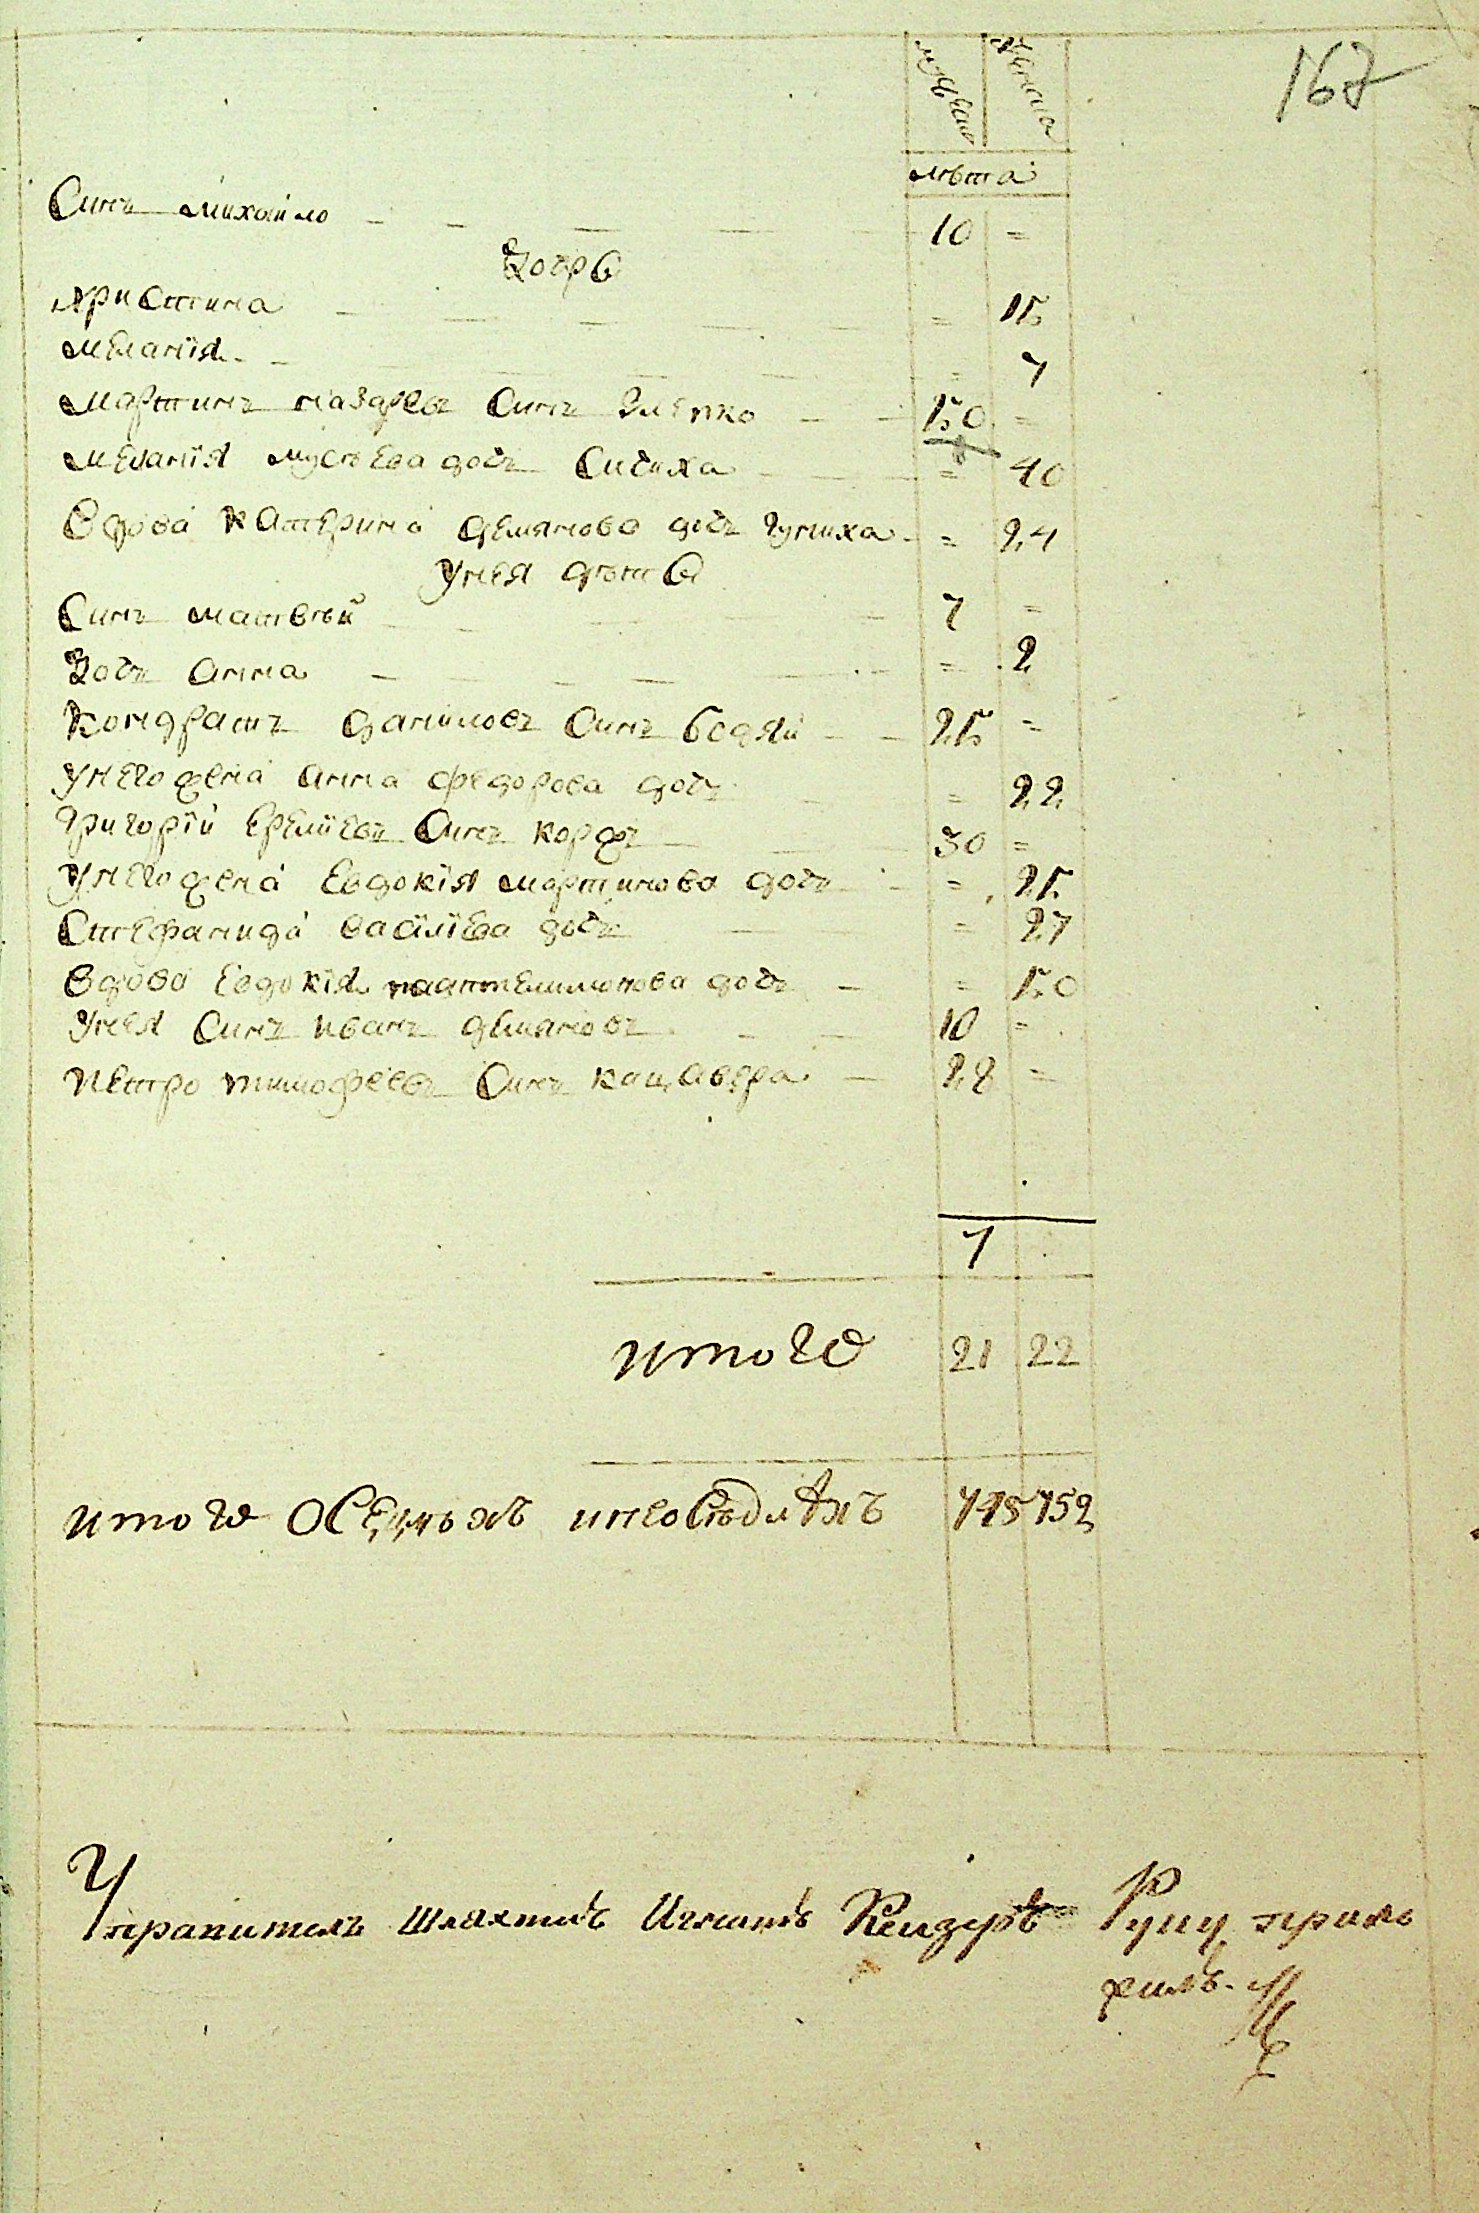 167
мужеска женска
лѣта
Синъ михайло 10 =
Дочрѣ
христина = 15
меланїя = 7
мартинъ назаревъ Синъ 50 =
меланїя дочъ = 40
Вдова катерина демянова дочъ = 24
Унея дѣти
Синъ матвѣй 7 =
Дочъ анна = 2
кондратъ даниловъ Синъ 25 =
Унего жена анна федорова дочъ = 22
григорїй еремїевъ Синъ коржъ 30 =
Унего жена Евдокїя мартинова дочъ = 25
Стефанида василїева дочъ = 27
Вдова Евдокїя пантелимонова дочъ = 50
Унея Синъ иванъ демяновъ 10 =
петро тимофеевъ Синъ 28 =
7
итого 21 22
итого 745 752
Управитель Шляхтичъ Руку прило
жилъ.